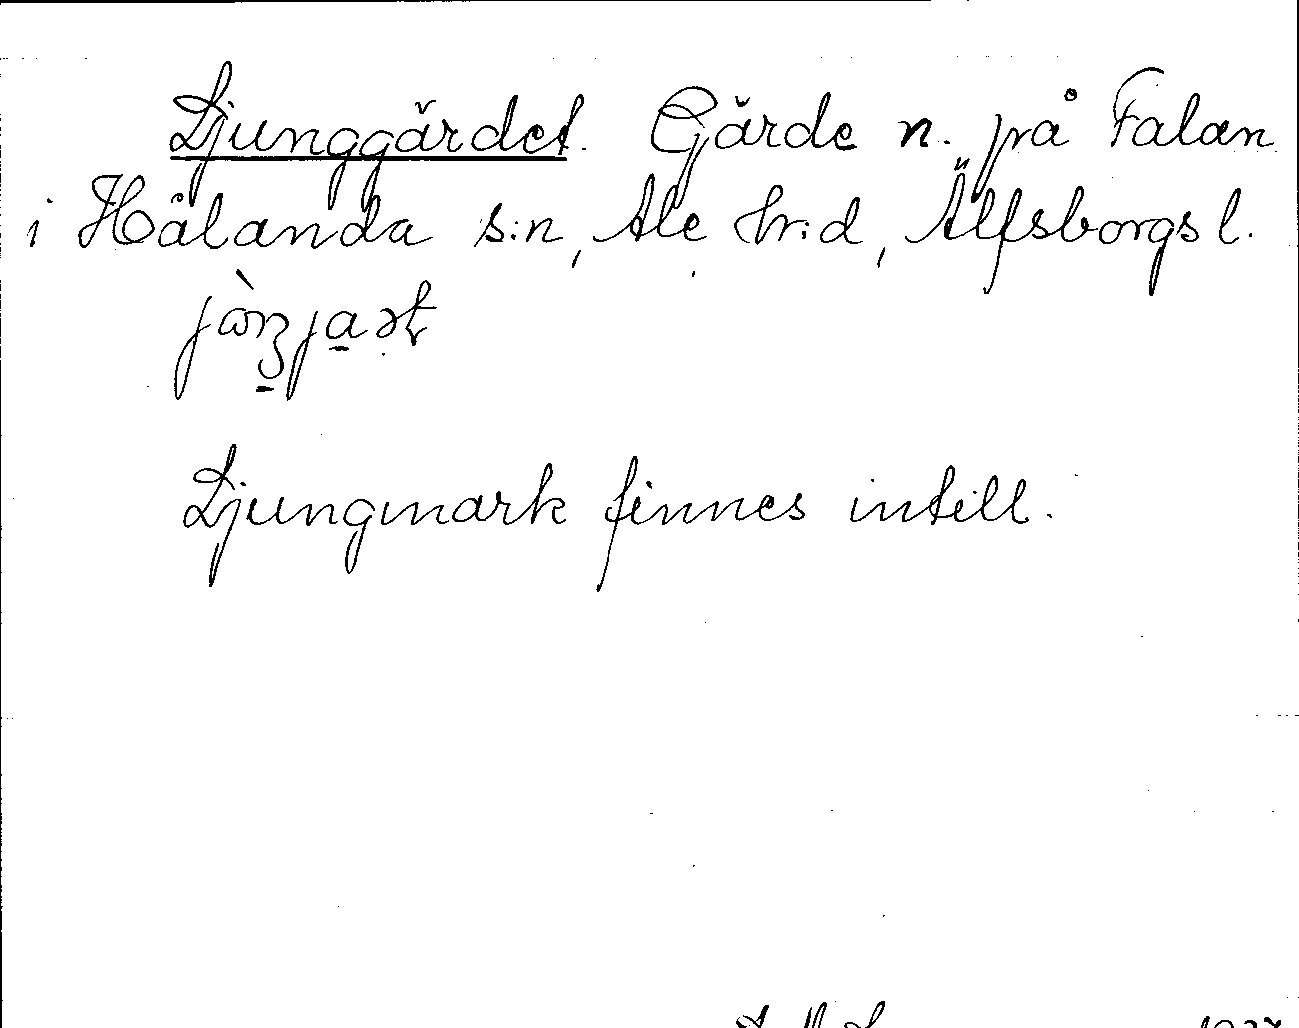 Ljunggärdet. Gärde n. på Falan
i Hålanda s:n, Ale hr:d, Älfsborgs l.
Ljungmark finnes intill.